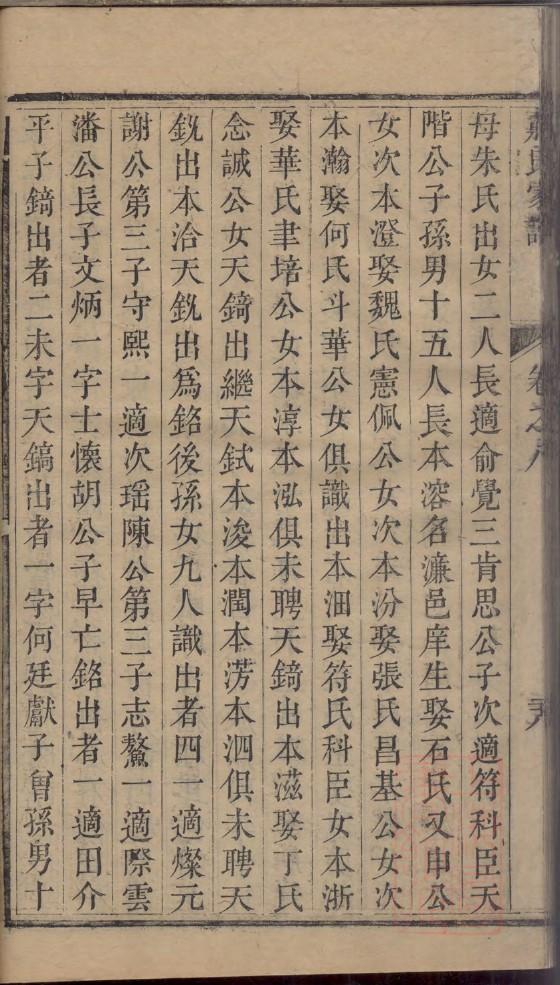 氏家譜
卷之八
母朱氏出女二人長適俞覺三肯思公子次適符科臣天
階公子孫男十五人長本溶名濂邑庠生娶石氏又申公
女次本澄娶魏氏憲佩公女次本汾娶張氏昌基公女次
本瀚娶何氏斗華公女俱識出本沺娶符氏科臣女本浙
娶華氏聿培公女本淳本泓俱未聘天錡出本滋娶丁氏
念誠公女天錡出繼天鉽本浚本潤本涝本泗俱未聘天
鋭出本洽天鋭出爲銘後孫女九人識出者四一適燦元
謝公第三子守熙一適次瑶陳公第三子志鰲一適際雲
潘公長子文炳一字士懷胡公子早亡銘出者一適田介
平子錡出者二未字天鎬出者一字何廷獻子曾孫男十